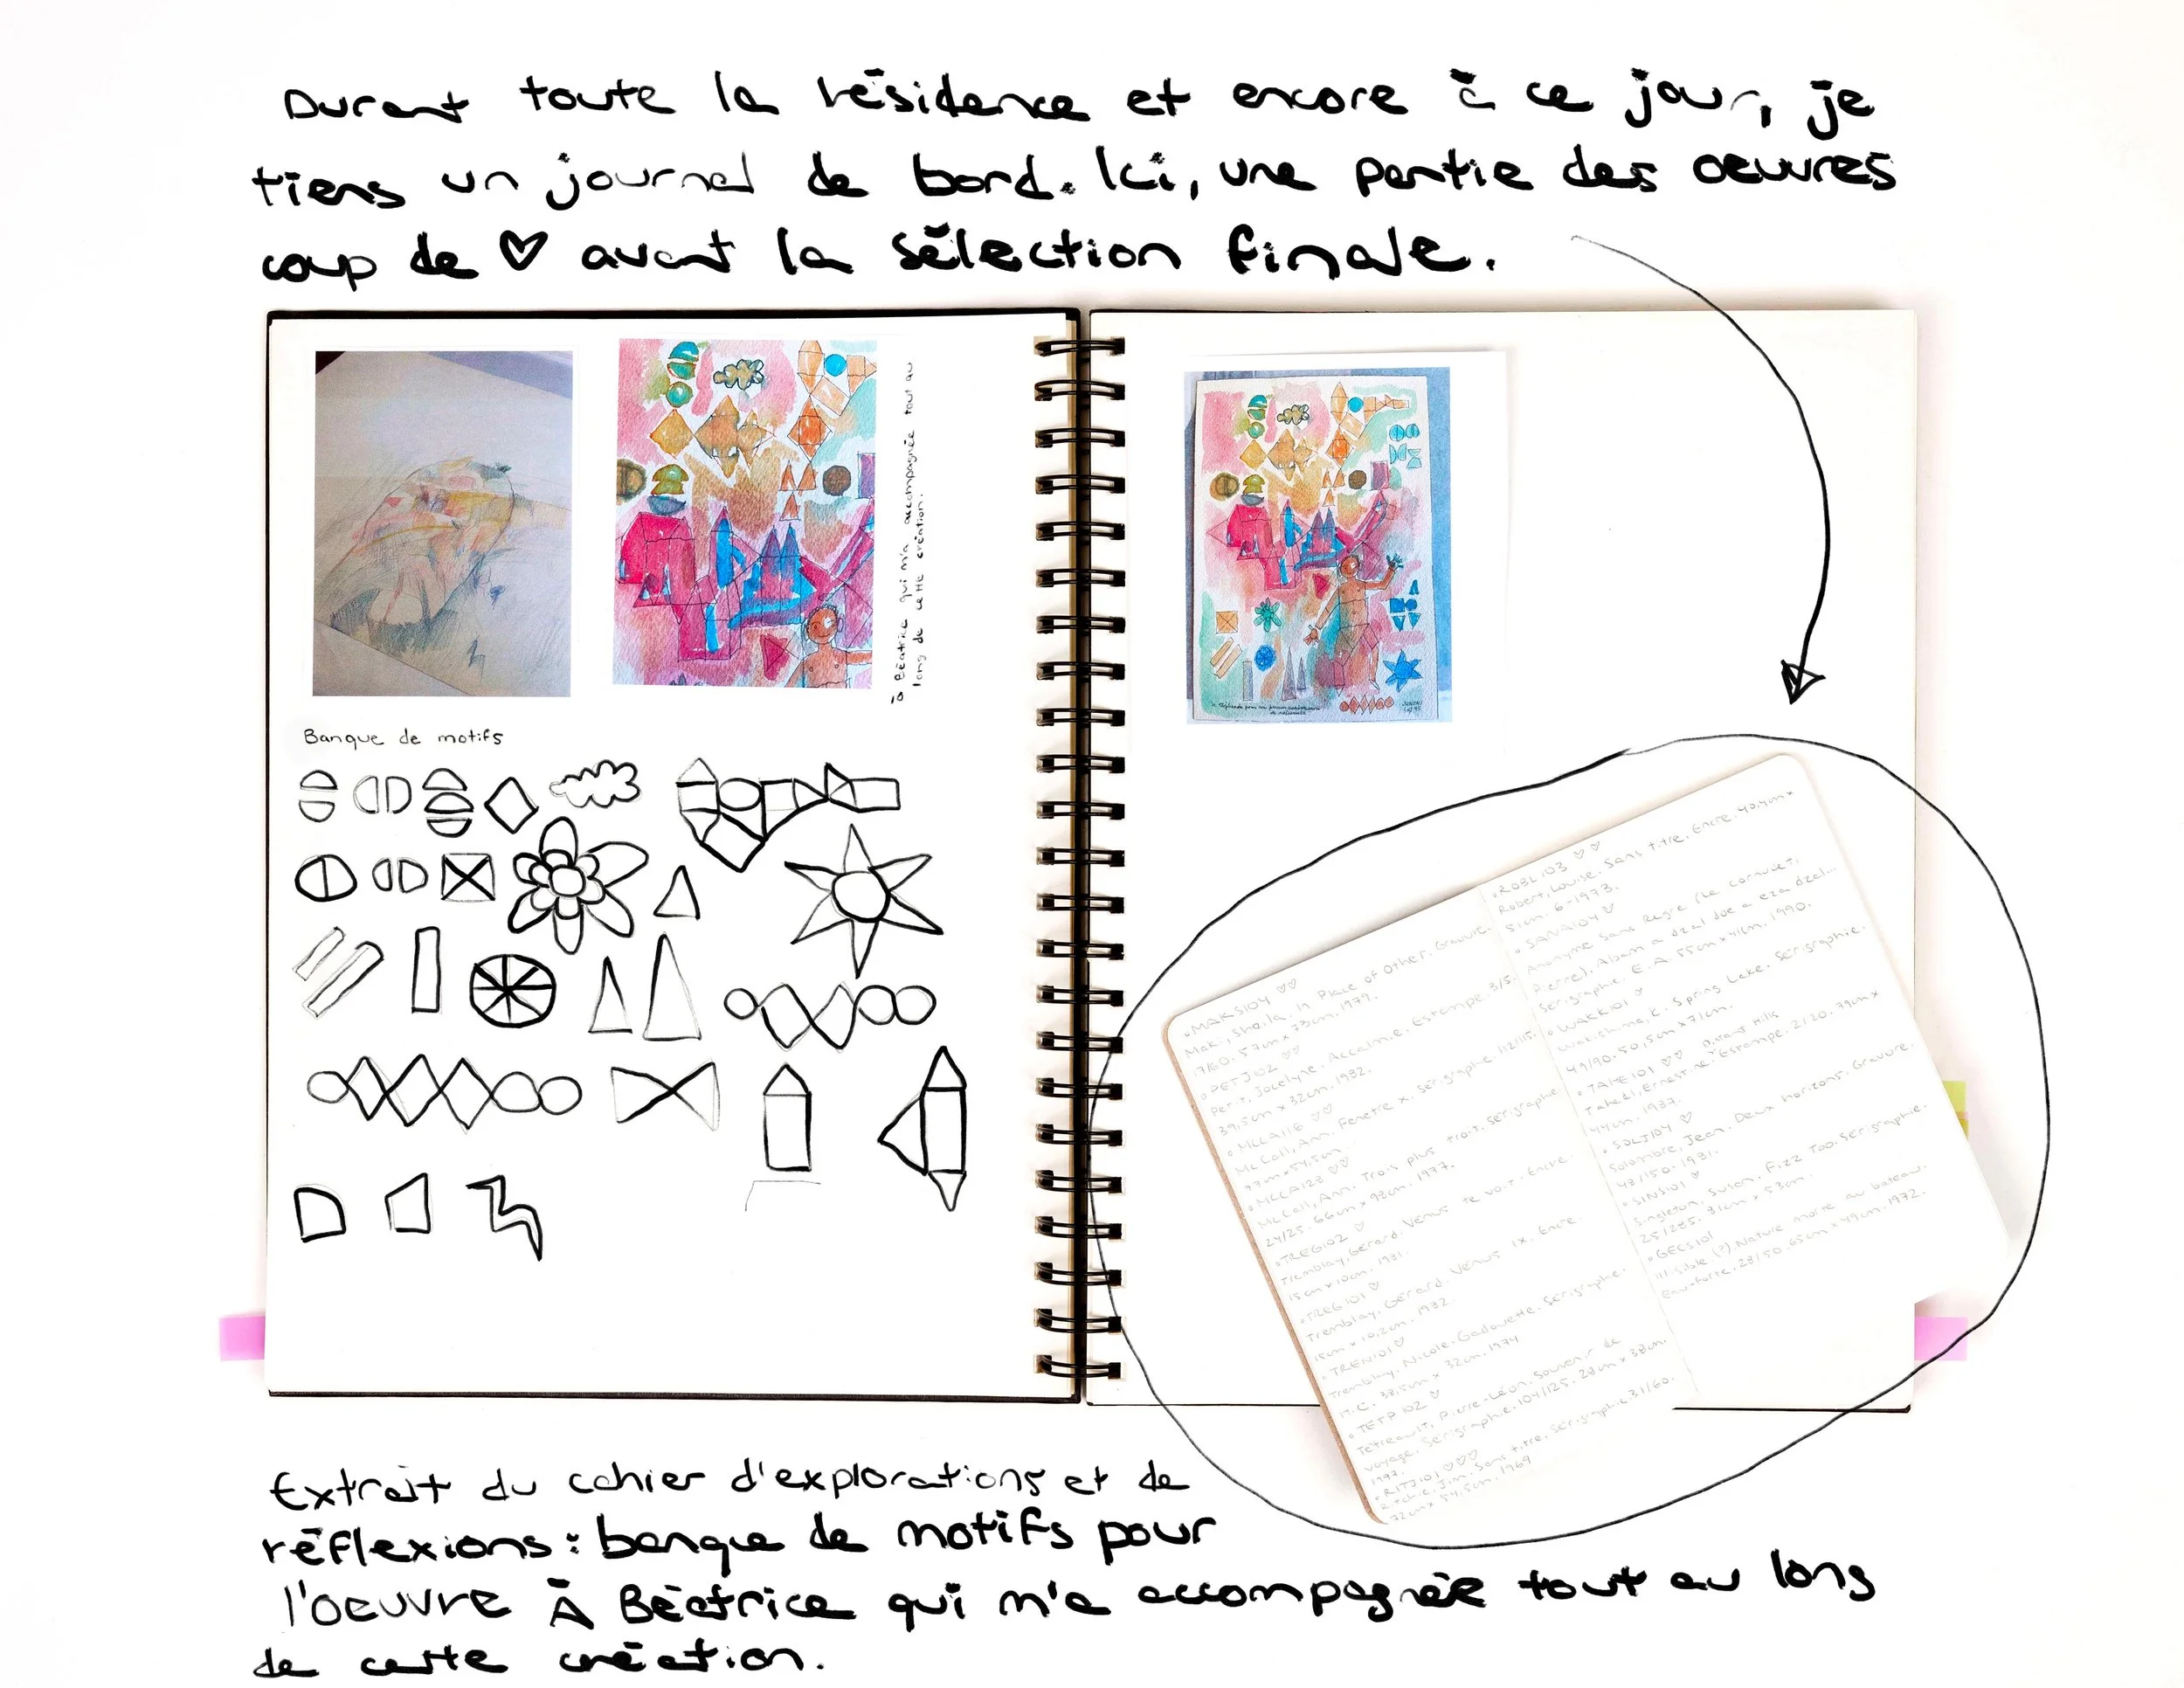 Durant toute la résidence et encore à ce jour, je
tiens un journal de bord. Ici, une partie des oeuvres
coup de ♡ avant la sélection finale.
à Béatrice qui m'a accompagnée tout au
long de cette création.
Banque de motifs
• MAKSI04 ♡♡
Maki, Sheila. In Place of Other. Gravure.
17/60. 57cm x 73cm. 1979.
• PETJ102 ♡♡
Petit, Jocelyne. Accalmie. Estampe. 3/5.
39,5cm x 32cm. 1982.
• MCCA116 ♡♡
McCall, Ann. Fenêtre X. Sérigraphie 112/115.
77m x 54,5cm.
• MCCA128 ♡♡
McCall, Ann. Trois plus trois. Sérigraphie
24/25. 66cm x 98cm. 1977.
• TREG102 ♡
Tremblay, Gérard. Vénus te voit. Encre.
15cm x 10cm. 1981.
• TREG101 ♡
Tremblay, Gérard. Vénus IX. Encre.
15cm x 10,2cm. 1982.
• TREN101 ♡
Tremblay, Nicole. Gadouette. Sérigraphie.
H.C. 38,5cm x 32cm. 1974
• TETP102 ♡
Tétreault, Pierre-Léon. Souvenir de
voyage. Sérigraphie. 104/125. 28cm x 38cm.
1977.
• RITJ101 ♡♡♡
Ritchie, Jim. Sans titre. Sérigraphie 31/60.
72cm x 54,5cm. 1969
• ROBL103 ♡♡
Robert, Louise. Sans titre. Encre. 40,4cm x
51cm. 6-1978.
• SANA104 ♡
Anonyme Sans Regre (Le cornueti
Pierre). Abam a dzal due a eza dzal...
Sérigraphie. E.A. 55cm x 41cm. 1990.
• WAKK101 ♡
Wakashima, K. Spring Lake. Sérigraphie.
49/90. 50,5cm x 71cm.
• TAHE101 ♡♡
Tahedl, Ernestine. Estampe. 2/20. 79cm x
44cm. 1987.
• SOLJ104 ♡
Solombre, Jean. Deux horizons. Gravure.
48/150. 1981.
• SINS101 ♡
Singleton, Susan. Fizz Too. Sérigraphie.
25/285. 81cm x 53cm.
• GECS101
Illisible (?) Nature morte au bateau.
Eau-forte. 28/50. 65cm x 49cm. 1972.
Extrait du cahier d'explorations et de
réflexions: banque de motifs pour
l'oeuvre À Béatrice qui m'a accompagnée tout au long
de cette création.